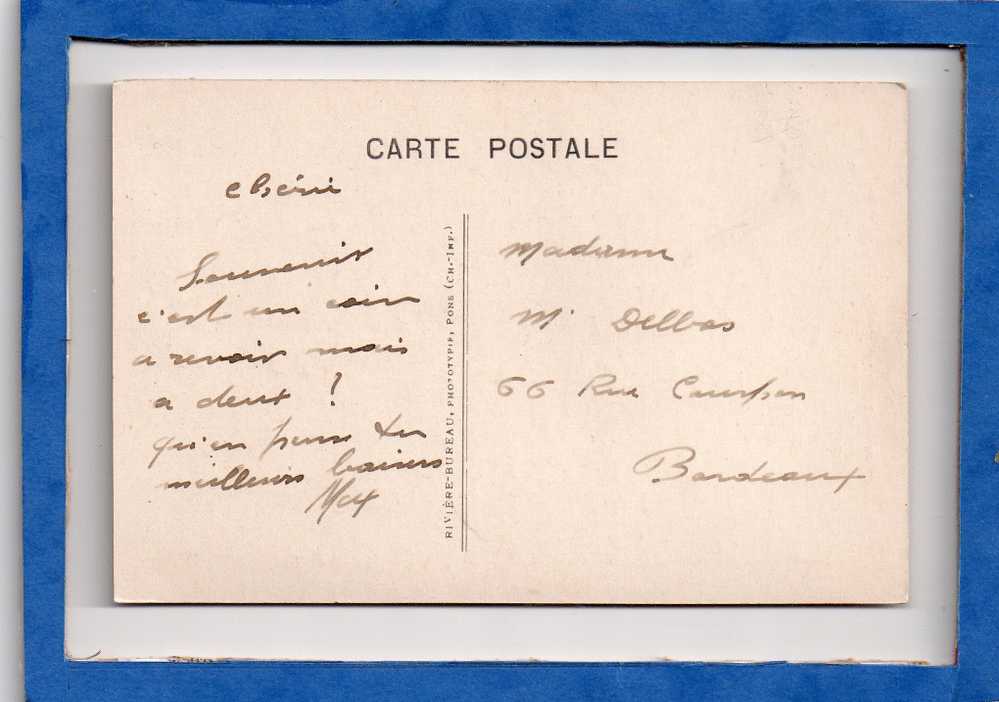 CARTE POSTALE
chérie
Souvenir
c'est un coin
a revoir mais
a deux ?
qu'en pense tu
meilleurs baisers
Max
RIVIÈRE-BUREAU, PHOTOTYPIE, PONS (CH.-INF.)
Madame
M. Delbos
66 Rue
Bordeaux